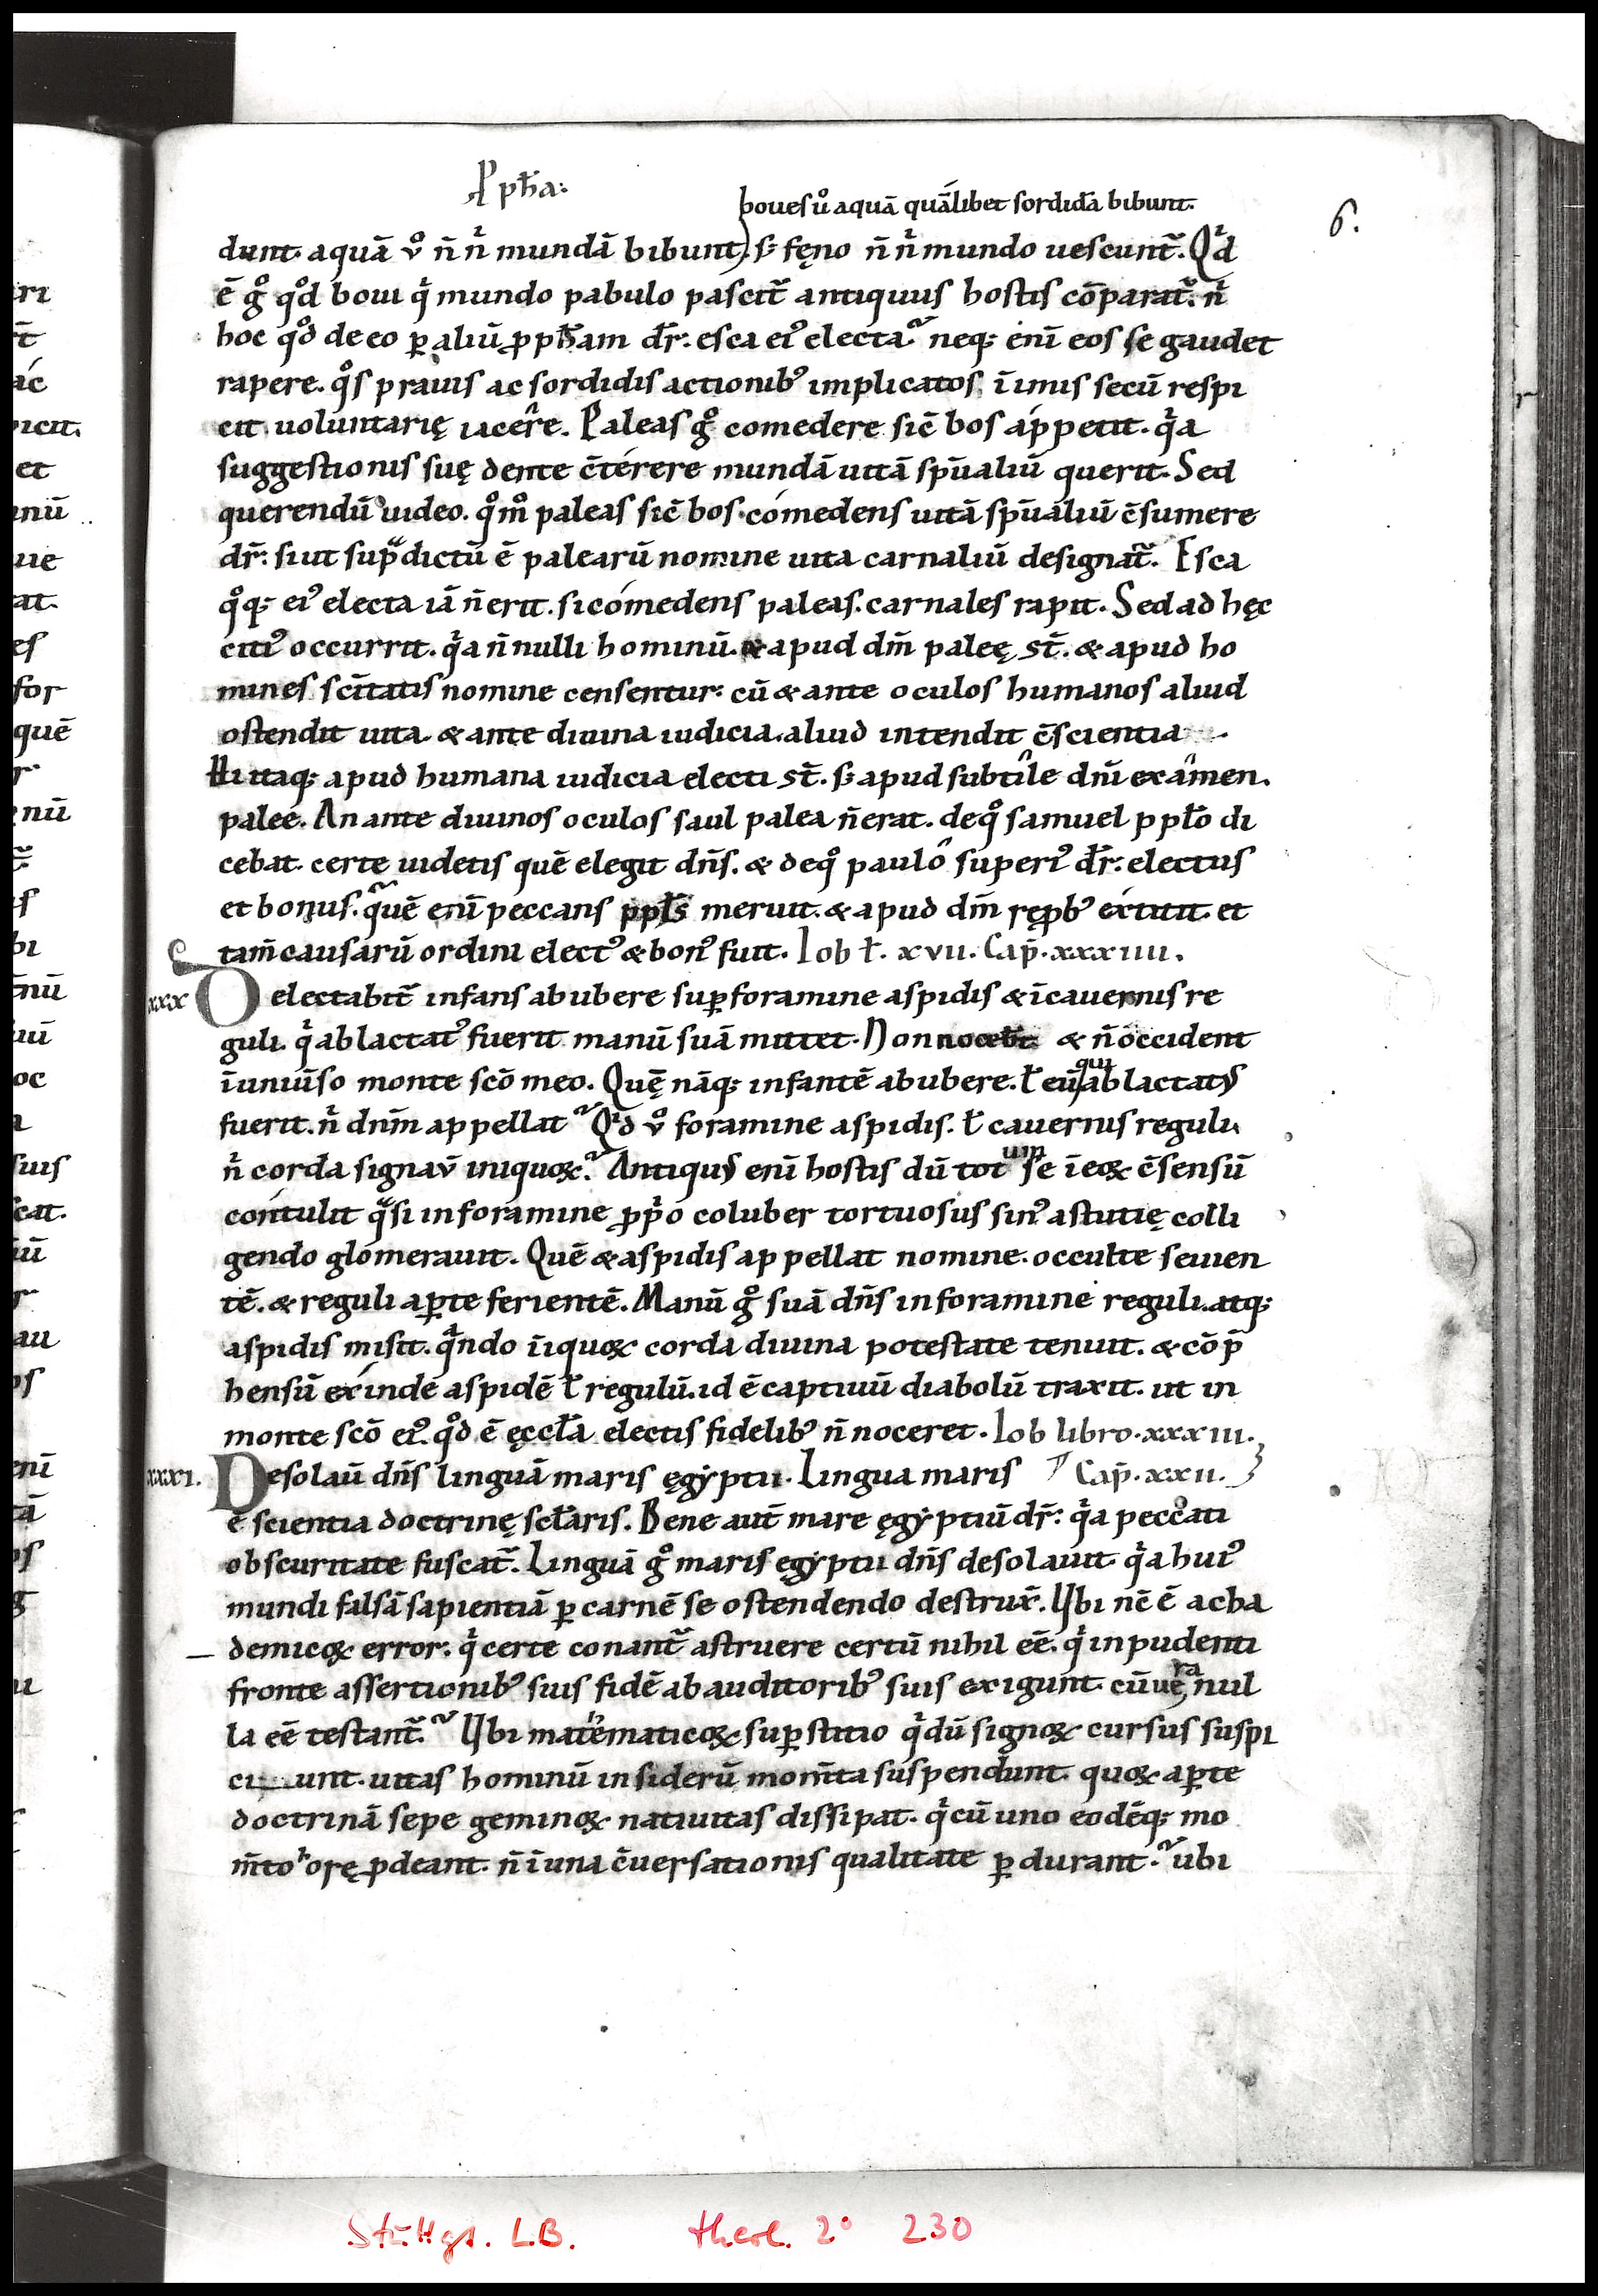 P pħa:
boues ů aquā quālibet sordidā bibunt.
6.
dunt. aquā v̊ n̄ nͥ mundā bibunt). s; fęno n̄ nͥ mundo uescunt᷑. Qͥd
ē gͦ qͦd boui qͥ mundo pabulo pascit᷑ antiquus hostis cōparat᷑. nͥ
hoc qͦd de eo ꝑ aliū ꝓpħam dr̄: esca eiꝰ electa. neq; enī eos se gaudet
rapere. qͦs prauis ac sordidis actionibꝰ implicatos, īimis secū respi
cit uoluntarię iacere. Paleas gͦ comedere sic̄ bos appetit. qͥa
suggestionis suę dente c̄terere mundā uitā spūaliū querit. Sed
querendū uideo. qͦm̊ paleas sic̄ bos comedens uitā spūaliū c̄sumere
dr̄: si ut supͣdictū ē palearū nomine uita carnaliū designat᷑. Esca
qͦq; eiꝰ electa iā n̄ erit. si comedens paleas. carnales rapit. Sed ad hęc
citiꝰ occurrit. qͥa n̄nulli hominū. & apud dm̄ paleę st̄. & apud ho
mines sc̄itatis nomine censentur: cū & ante oculos humanos aliud
ostendit uita. & ante diuina iudicia. aliud intendit c̄scientia
Hi itaq; apud humana iudicia electi st̄. s; apud subtile dnī examen.
palee. An ante diuinos oculos saul palea n̄ erat. de qͦ samuel ppło di
cebat. certe uidetis quē elegit dn̄s. & de qͦ paulo superiꝰ dr̄: electus
et bonus. quē enī peccans ppłs meruit. & apud dm̄ rep̱bꝰ extitit. et
tam̄ causarū ordini electꝰ & bonꝰ fuit. Iob ł. xvii. Cap̄. xxxiiii.
xxx Delectabit᷑ infans ab ubere suꝑ foramine aspidis & ī cauernis re
guli. qͥ ablactatꝰ fuerit manū suā mittet. Non nocebt & n̄ occident
ī uniūso monte sc̄o meo. Quę nāq; infantē ab ubere. ł eū qui ablactatꝰ
fuerit. nͥ dnm̄ appellat Qͥd v̊ foramine aspidis. ł cauernis reguli
nͥ corda signav̄ iniquoꝝ. Antiquꝰ enī hostis dū totum se ī eoꝝ c̄sensū
contulit qͣsi in foramine ꝓpͥo coluber tortuosus sinꝰ astutię colli
gendo glomerauit. Quē & aspidis appellat nomine. occulte seuien
tē. & reguli aꝑte ferientē. Manū gͦ suā dn̄s in foramine reguli. atq;
aspidis misit. qͣndo īiquoꝝ corda diuina potestate tenuit. & cōp̄
hensū exinde aspidē ł regulū. id ē captiuū diabolū traxit. ut in
monte sc̄o eiꝰ. qͦd ē ęccła electis fidelibꝰ n̄ noceret. Iob libro. xxxiii.
xxxi. Desolaū dn̄s linguā maris ęgẏptii. Lingua maris Cap̄. xxii.
ē scientia doctrinę scłaris. Bene aut̄ mare ęgẏptiū dr̄: qͥa peccati
obscuritate fuscat᷑. Linguā gͦ maris egẏptii dn̄s desolauit. qͥa huiꝰ
mundi falsā sapientiā ꝑ carnē se ostendendo destrux̄. Ubi nc̄ ē acha
demicoꝝ error: qͥ certe conant᷑ astruere certū nihil eē. qͥ inpudenti
fronte assertionibꝰ suis fidē ab auditoribꝰ suis exigunt. cū uera nul
la eē testant᷑. Ubi matematicoꝝ suꝑstitio qͥ dū signoꝝ cursus suspi
ciunt. uitas hominū in siderū mom̄ta suspendunt. quoꝝ aꝑte
doctrinā sepe geminoꝝ natiuitas dissipat. qͥ cū uno eodēq; mo
m̄to horę ꝓdeant. n̄ ī una c̄uersationis qualitate ꝑdurant. ubi
Stuttgt. L.B. theol. 2° 230